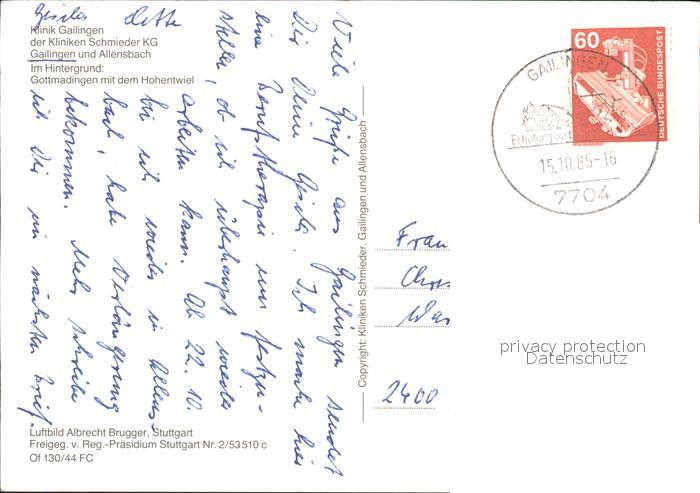 Klinik Gailingen
der Kliniken Schmieder KG
Gailingen und Allensbach
Im Hintergrund:
Gottmadingen mit dem Hohentwiel
Viele Grüße aus Gailingen sendet
Dir Deine Gisela. Ich mache hier
eine Berufstherapie um festzu-
stellen, ob ich überhaupt wieder
arbeiten kann. Ab 22. 10.
bin ich wieder in Allens-
bach, habe Verlängerung
bekommen. Mehr schreibe
ich Dir im nächsten Brief.
Gisela
Bitte
Luftbild Albrecht Brugger, Stuttgart
Freigeg. v. Reg.-Präsidium Stuttgart Nr. 2/53510 c
Of 130/44 FC
Copyright: Kliniken Schmieder, Gailingen und Allensbach
60
DEUTSCHE BUNDESPOST
GAILINGEN
Erholungsort
15.10.85-16
7704
Frau
2400
privacy protection
Datenschutz